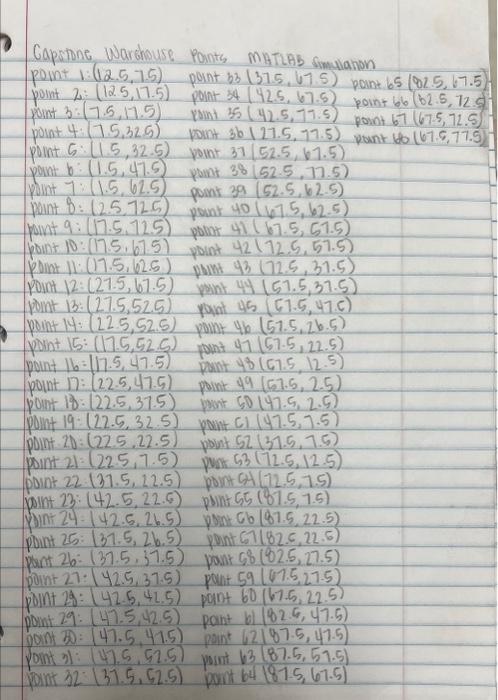 Capstone Warehouse Points MATLAB Simulation
point 1:(12.5,7.5)
point 2:(12.5,17.5)
point 3:(7.5,17.5)
point 4:(7.5,32.5)
point 5:(1.5,32.5)
point 6:(1.5,47.5)
point 7:(1.5,62.5)
point 8:(2.5,72.5)
point 9:(17.5,72.5)
point 10:(17.5,67.5)
point 11:(17.5,62.5)
point 12:(27.5,67.5)
point 13:(27.5,52.5)
point 14:(22.5,52.5)
point 15:(17.5,52.5)
point 16:(17.5,47.5)
point 17:(22.5,47.5)
point 18:(22.5,37.5)
point 19:(22.5,32.5)
point 20:(22.5,22.5)
point 21:(22.5,7.5)
point 22:(37.5,22.5)
point 23:(42.5,22.5)
point 24:(42.5,26.5)
point 25:(37.5,26.5)
point 26:(37.5,37.5)
point 27:(42.5,37.5)
point 28:(42.5,42.5)
point 29:(47.5,42.5)
point 30:(47.5,47.5)
point 31:(47.5,52.5)
point 32:(37.5,52.5)
point 33(37.5,67.5)
point 34(42.5,67.5)
point 35(42.5,77.5)
point 36(27.5,77.5)
point 37(52.5,67.5)
point 38(52.5,77.5)
point 39(52.5,62.5)
point 40(67.5,62.5)
point 41(67.5,57.5)
point 42(72.5,57.5)
point 43(72.5,37.5)
point 44(57.5,37.5)
point 45(57.5,47.5)
point 46(57.5,26.5)
point 47(57.5,22.5)
point 48(57.5,12.5)
point 49(57.5,2.5)
point 50(47.5,2.5)
point 51(47.5,7.5)
point 52(37.5,7.5)
point 53(72.5,12.5)
point 54(72.5,7.5)
point 55(87.5,7.5)
point 56(87.5,22.5)
point 57(82.5,22.5)
point 58(82.5,27.5)
point 59(67.5,27.5)
point 60(67.5,22.5)
point 61(82.5,47.5)
point 62(87.5,47.5)
point 63(87.5,57.5)
point 64(87.5,67.5)
point 65(82.5,67.5)
point 66(82.5,72.5)
point 67(67.5,72.5)
point 66(67.5,77.5)